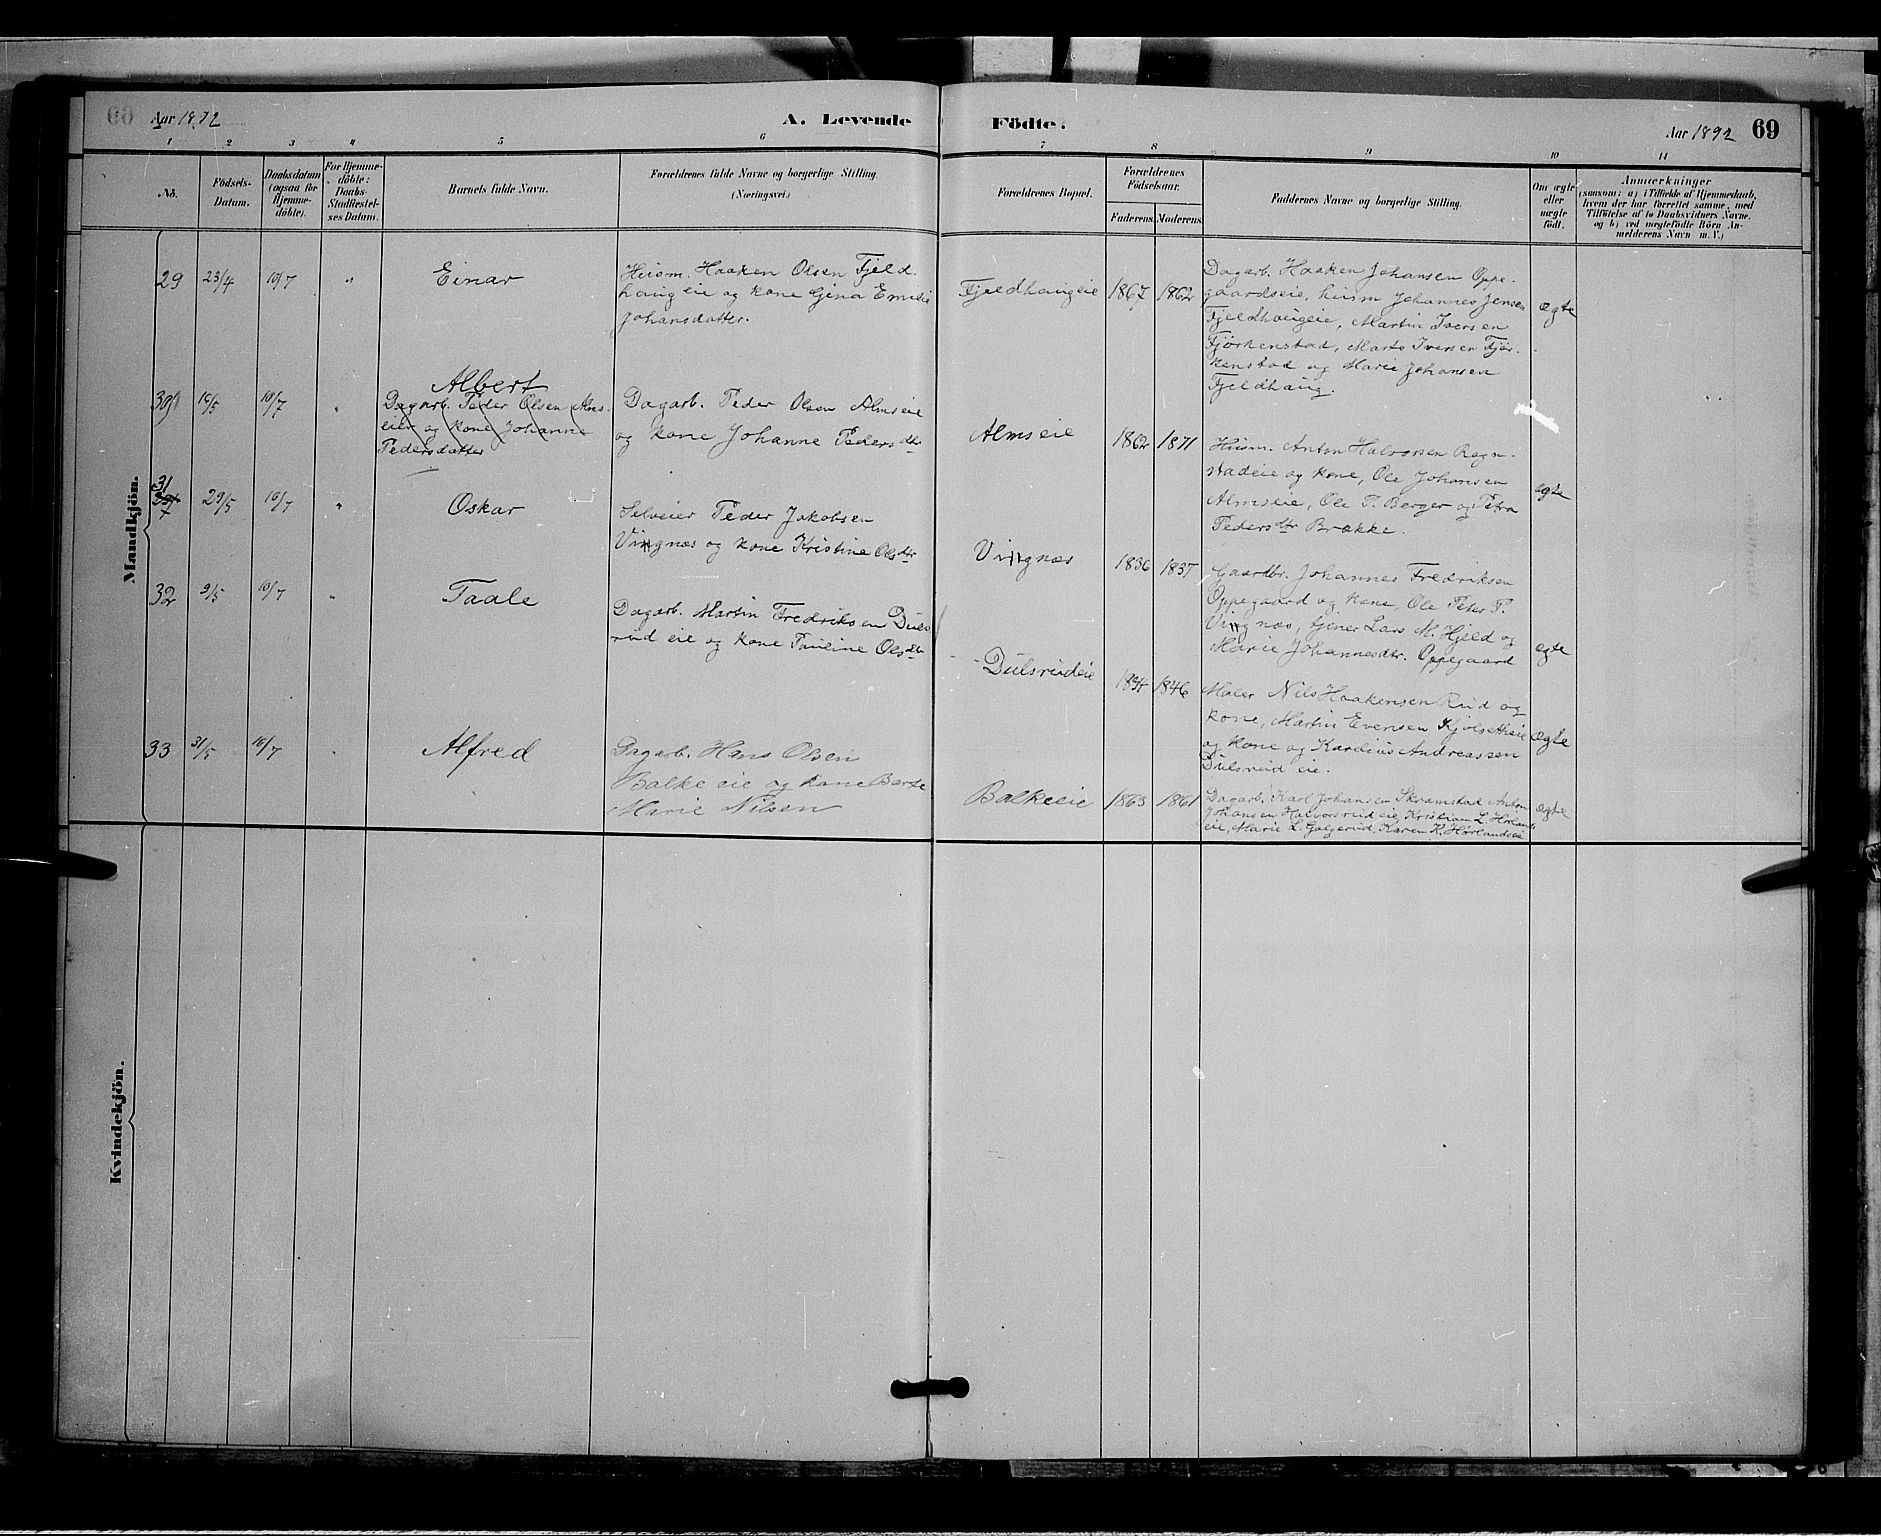 Aar 1892
A. Levende
Födte.
Aar 1892 69
1 2 3 4 5 6 7 8 9 10 11
No.
Födsels-
Datum.
Daabsdatum
(ogsaa for
Hjemme-
döbte).
For Hjemme-
döbte:
Daabs-
Stadfæstel-
ses Datum.
Barnets fulde Navn.
Forældrenes fulde Navne og borgerlige Stilling.
(Næringsvei.)
Forældrenes Bopæl.
Forældrenes
Födselsaar.
Faderens. Moderens.
Faddernes Navne og borgerlige Stilling.
Om ægte
eller
uægte
födt.
Anmærkninger
(saasom: a) i Tilfælde af Hjemmedaab,
hvem der har forrettet samme, med
Tilföielse af to Daabsvidners Navne,
og b) ved uægtefödte Börn An-
melderens Navn m. V.)
Mandkjön.
29 23/4 10/7 "
Einar
Husm. Haaken Olsen Fjeld-
haugeie og kone Gina Emilie
Johansdatter.
Fjeldhaugeie 1867 1862
Dagarb. Haaken Johansen Oppe-
gaardseie, husm Johannes Jensen
Fjeldhaugeie, Martin Iversen
Fjørkenstad, Marte Iversen Fjør-
kenstad og Marie Johansen
Fjeldhaug.
ægte
30 10/7 "
Albert
Dagarb. Peder Olsen Alms-
eie og kone Johanne
Pedersdatter
Dagarb. Peder Olsen Almseie
og kone Johanne Pedersdtr
Almseie 1862 1871
Husm. Anton Halvorsen Rogn-
stadeie og kone, Ole Johansen
Almseie, Ole P. Berger og Petra
Pedersdtr Brække.
ægte
31 29/5 10/7 "
Oskar
Selveier Peder Jakobsen
Vingnæs og kone Kristine Olsdtr
Vingnæs 1836 1837
Gaardbr. Johannes Fredriksen
Oppegaard og kone, Ole Peter P.
Vingnæs, tjener Lars M. Hjeld og
Marie Johannesdtr. Oppegaard
ægte
32 9/5 10/7 "
Taale
Dagarb. Martin Fredriksen Duls-
rud eie og kone Pauline Olsdtr
Dulsrudeie 1846
Maler Nils Haakensen Rud og
kone, Martin Evensen Kjølsetheie
og kone og Karelius Andreassen
Dulsrud eie.
ægte
33 31/5 10/7 "
Alfred
Dagarb. Hans Olsen
Balke eie og kone Berte
Marie Nilsen
Balkeeie 1863 1861
Dagarb. Karl Johansen Skramstad Anton
Johansen Halvorsrud eie, Kristian L. Hørlands
eie, Marie L. Galgerud, Karen K. Hørlandseie
ægte
Kvindekjön.